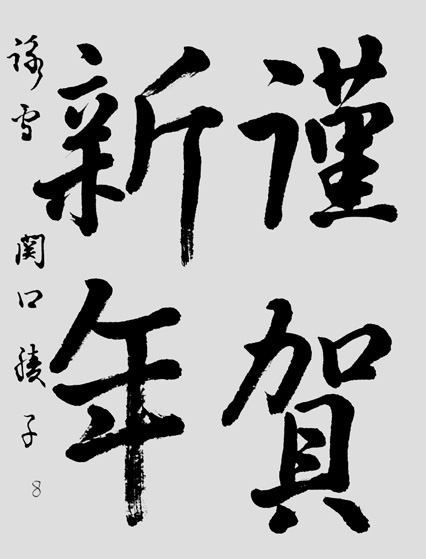 謹賀
新年
詠雪 関口綾子
8